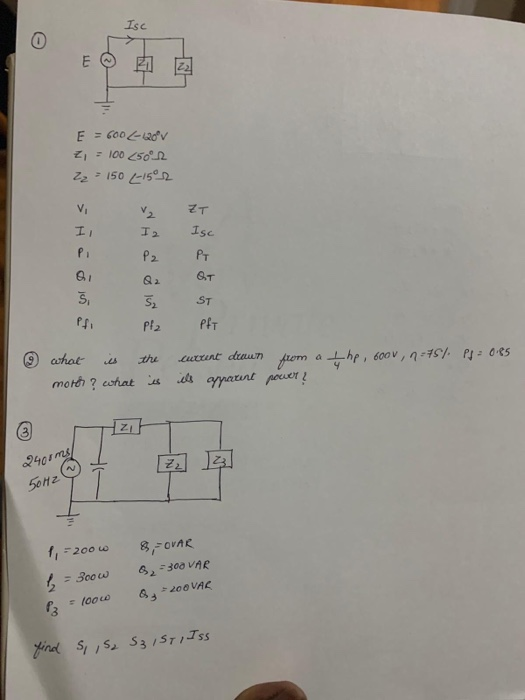 ① Isc
E ~ Z1 Z2
E = 600∠-120°V
Z1 = 100∠50°Ω
Z2 = 150∠-15°Ω
V1 V2 ZT
I1 I2 Isc
P1 P2 PT
Q1 Q2 QT
S̅1 S̅2 ST
Pf1 Pf2 PfT
② what is the current drawn from a 1/4 hp, 600V, η=75%. Pf = 0.85
motor? what is its apparent power?
③ Z1
240rms ~ Z2 Z3
50HZ
P1 = 200w Q1 = 0VAR
P2 = 300w Q2 = 300VAR
P3 = 100w Q3 = 200VAR
find S1, S2 S3, ST, Iss